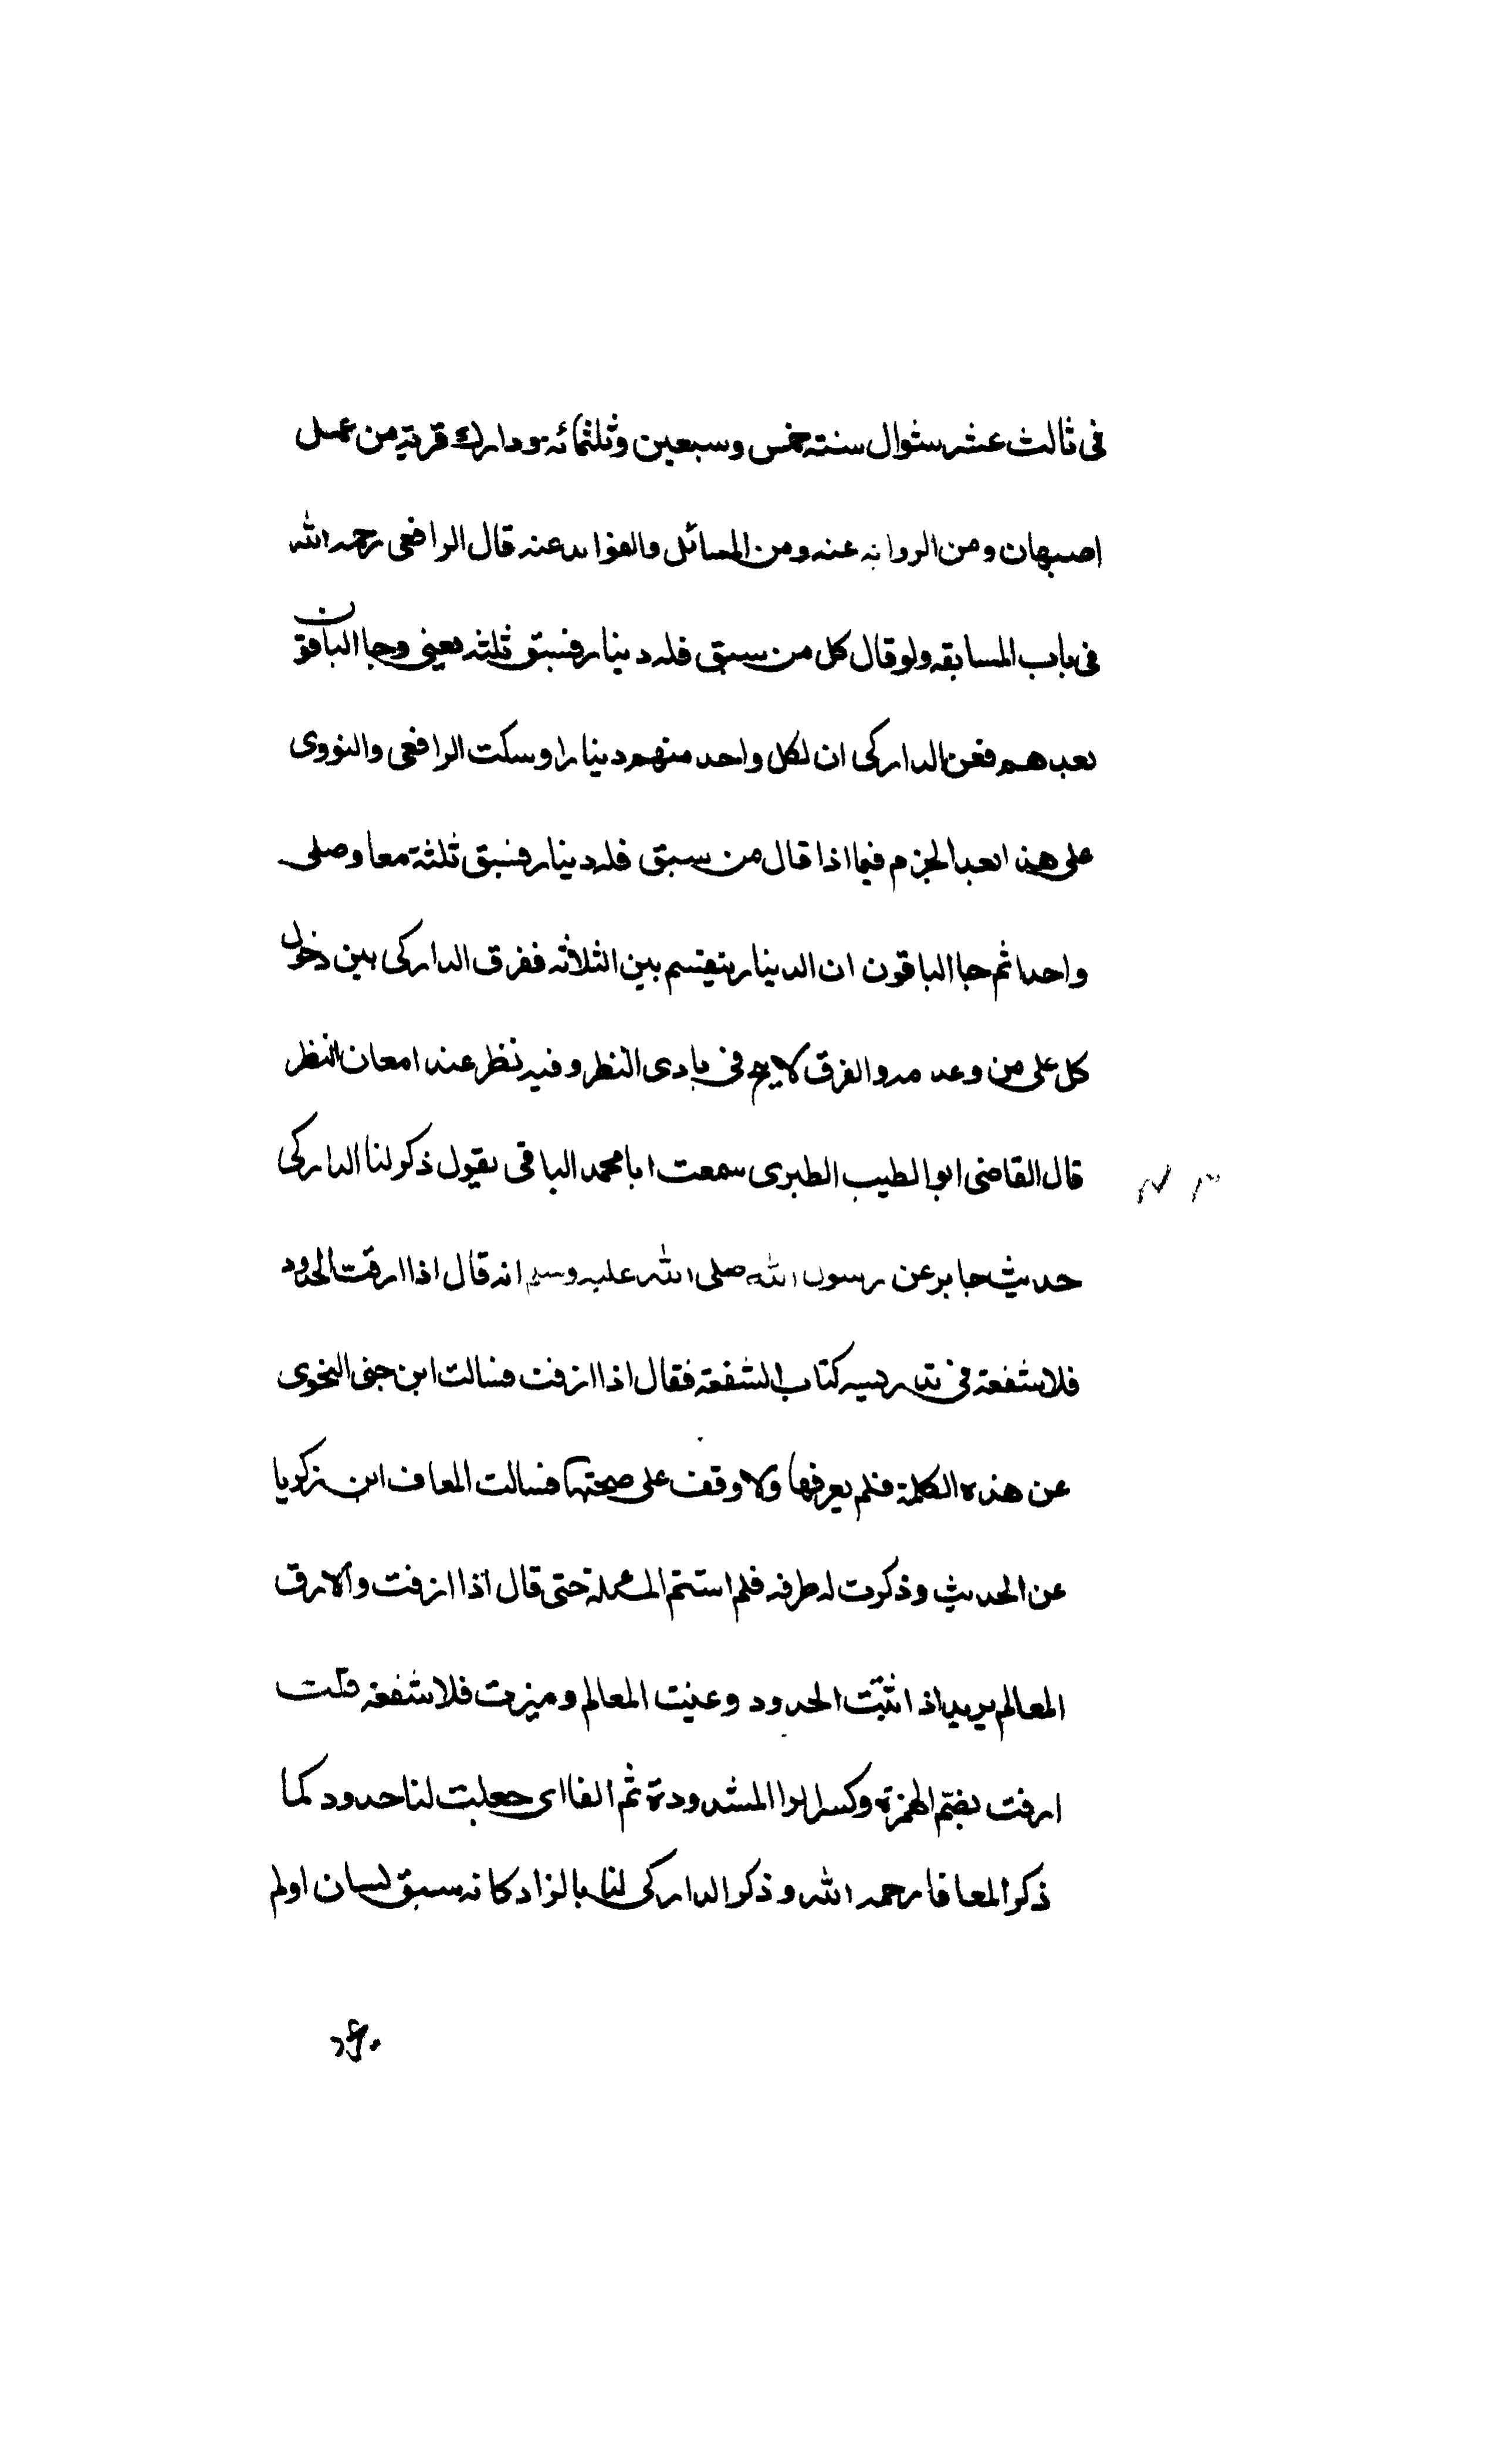 فى ثالث عشر شوال سنة خمس وسبعين وثلثمائة ودارك قرية من عمل
اصبهان ومن الرواية عنه ومن المسائل والفوايد عنه قال الرافعى رحمه الله
فى باب المسابقه ولو قال كل من سبق فله دينار فسبق ثلثه يعنى وجا الباقون
بعدهم فعن الداركى ان لكل واحد منهم دينارا وسكت الرافعى والنووى
على هذا بعد الجزم فيما اذا قال من سبق فله دينار فسبق ثلثة معا وصلى
واحدا ثم جا الباقون ان الدينار يقتسم بين الثلاثه ففرق الداركى بين دخول
كل على من وعدمه والفرق لايح فى بادى النظر وفيه نظر عند امعان النظر
قال القاضى ابو الطيب الطبرى سمعت ابا محمد الباقى يقول ذكر لنا الداركى
حديث جابر عن رسول الله صلى الله عليه وسلم انه قال اذا ارقت الحدود
فلا شفعة فى تدريسه كتاب الشفعة فقال اذا ازفت فسالت ابن جنى النحوى
عن هذه الكلمة فلم يعرفها ولا وقف على صحتها فسالت المعاف ابن زكريا
عن الحديث وذكرت له طرفه فلم استتم المسئلة حتى قال اذا ازفت والارق
المعالم يريد اذا ثبتت الحدود وعينت المعالم وميزت فلا شفعة قلت
ارفت بضم الهمزة وكسر الرا المشدودة ثم الفا اى جعلت لنا حدود كما
ذكر المعافا رحمه الله وذكر الداركى لنا بالزاد كانه سبق لسان اولم